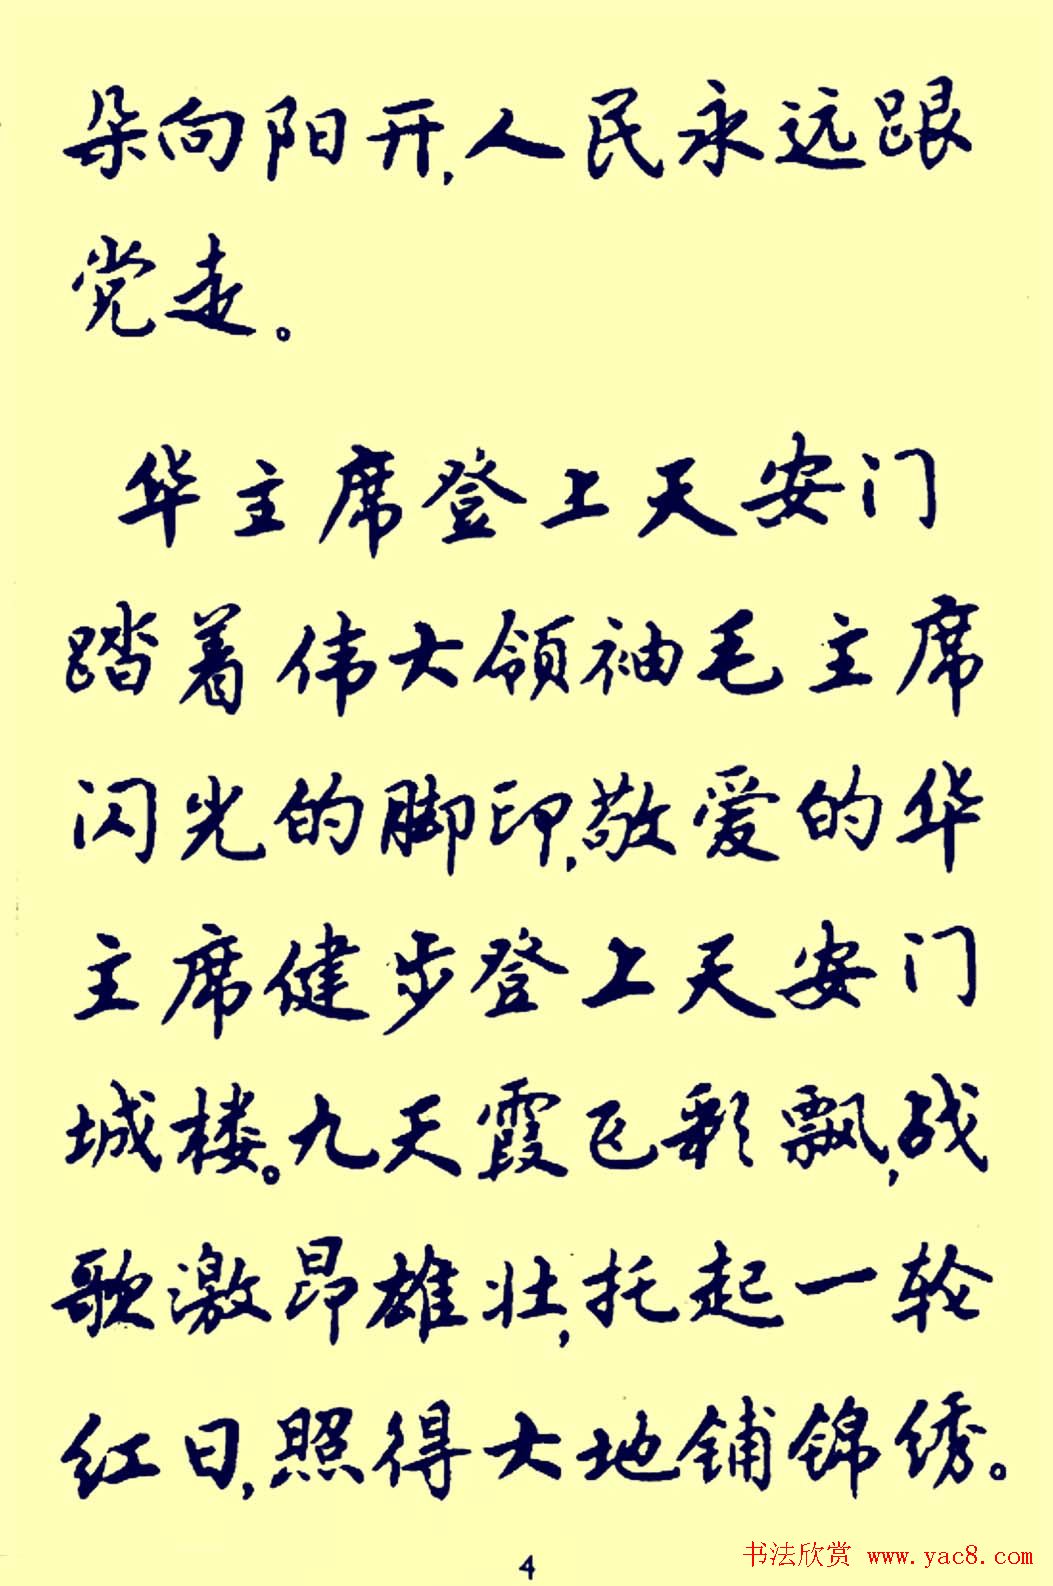 朵向阳开,人民永远跟
党走。
华主席登上天安门
踏着伟大领袖毛主席
闪光的脚印,敬爱的华
主席健步登上天安门
城楼。九天霞飞彩飘,战
歌激昂雄壮,托起一轮
红日,照得大地铺锦绣。
4
书法欣赏 www.yac8.com